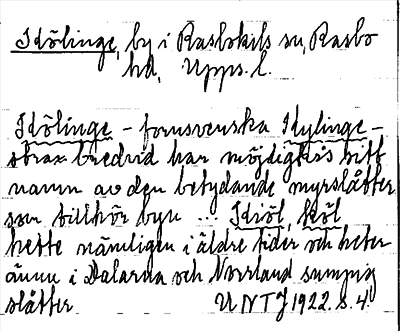 Kölinge, by i Rasbokils sn, Rasbo
hd, Upps. l.
Kölinge – fornsvenska Kylinge –
strax bredvid har möjligtvis sitt
namn av den betydande myrslåtter
som tillhör byn ... Kiöl, köl
hette nämligen i äldre tider och heter
ännu i Dalarna och Norrland sumpig
slåtter UNT 1922 s. 4.